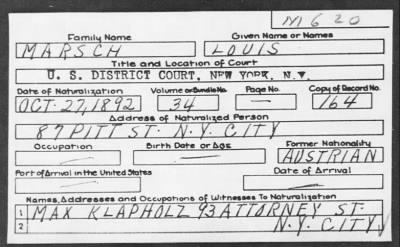 M620
Family Name Given Name or Names
MARSCH LOUIS
Title and Location of Court
U. S. DISTRICT COURT, NEW YORK, N.Y.
Date of Naturalization Volume or Bundle No. Page No. Copy of Record No.
OCT. 27, 1892 34 — 164
Address of Naturalized Person
87 PITT ST. N.Y. CITY
Occupation Birth Date or Age Former Nationality
— — AUSTRIAN
Port of Arrival in the United States Date of Arrival
— —
Names, Addresses and Occupations of Witnesses To Naturalization
1 MAX KLAPHOLZ 93 ATTORNEY ST.
2 N.Y. CITY